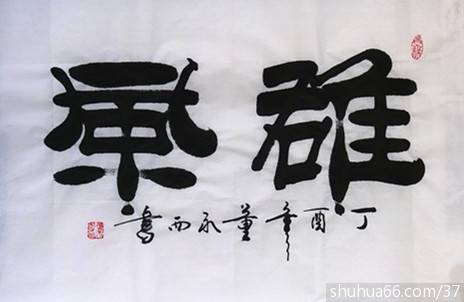 雄風
丁酉年董永西書
shuhua66.com/37